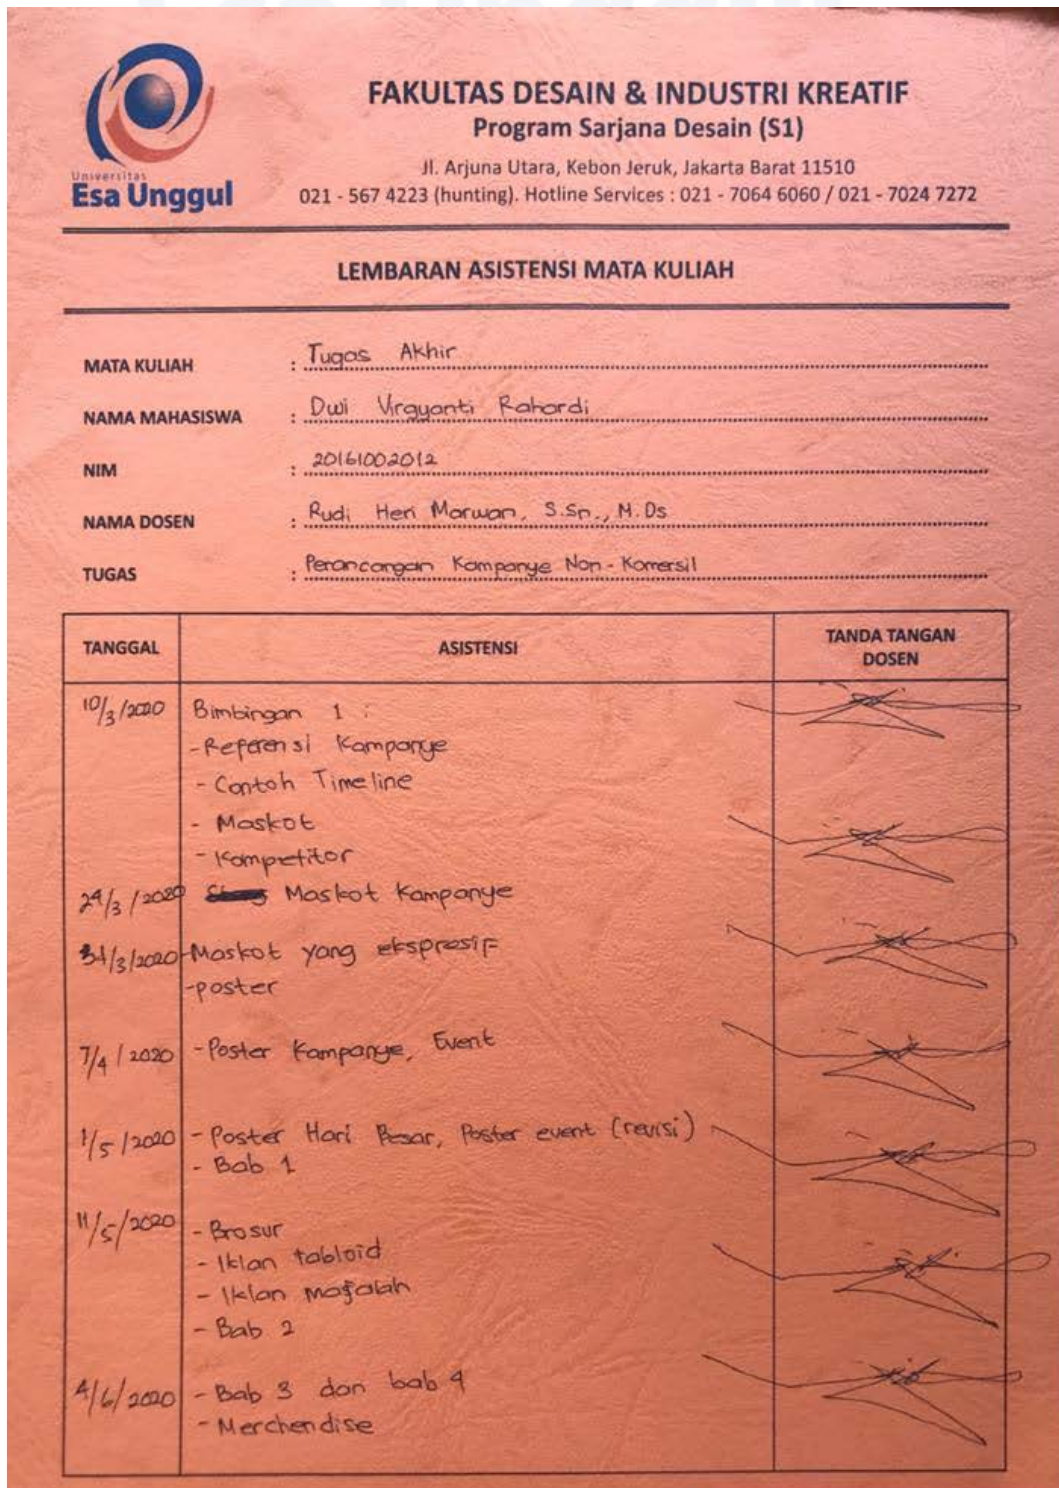 Universitas
Esa Unggul
FAKULTAS DESAIN & INDUSTRI KREATIF
Program Sarjana Desain (S1)
Jl. Arjuna Utara, Kebon Jeruk, Jakarta Barat 11510
021 - 567 4223 (hunting). Hotline Services : 021 - 7064 6060 / 021 - 7024 7272
LEMBARAN ASISTENSI MATA KULIAH
MATA KULIAH : Tugas Akhir
NAMA MAHASISWA : Dwi Virgyanti Rahardi
NIM : 20161002012
NAMA DOSEN : Rudi Heri Marwan, S.Sn., M.Ds
TUGAS : Perancangan Kampanye Non-Komersil
TANGGAL ASISTENSI TANDA TANGAN
DOSEN
10/3/2020 Bimbingan 1 :
- Referensi Kampanye
- Contoh Timeline
- Maskot
- Kompetitor
24/3/2020 Maskot Kampanye
31/3/2020 - Maskot yang ekspresif
- poster
7/4/2020 - Poster Kampanye, Event
1/5/2020 - Poster Hari Besar, Poster event (revisi)
- Bab 1
11/5/2020 - Brosur
- Iklan tabloid
- Iklan majalah
- Bab 2
4/6/2020 - Bab 3 dan bab 4
- Merchendise